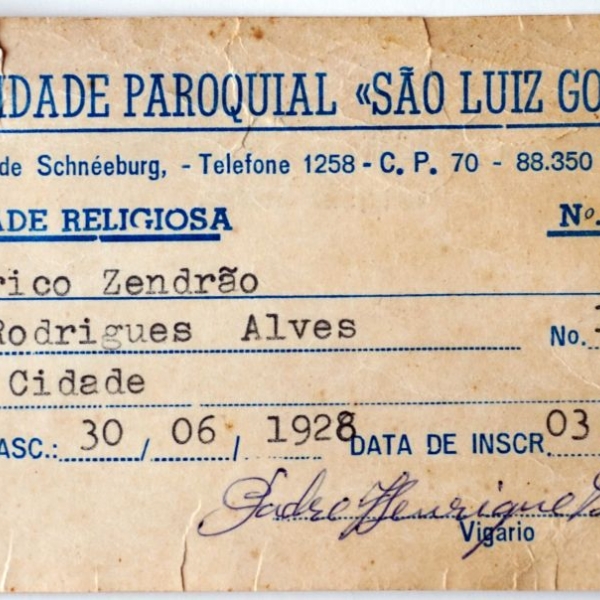 IDADE PAROQUIAL «SÃO LUIZ GO
de Schnéeburg, - Telefone 1258 - C. P. 70 - 88.350
ADE RELIGIOSA Nº.
rico Zendrão
Rodrigues Alves No.
Cidade
ASC.: 30 / 06 / 1928 DATA DE INSCR. 03
Padre Henrique
Vigário